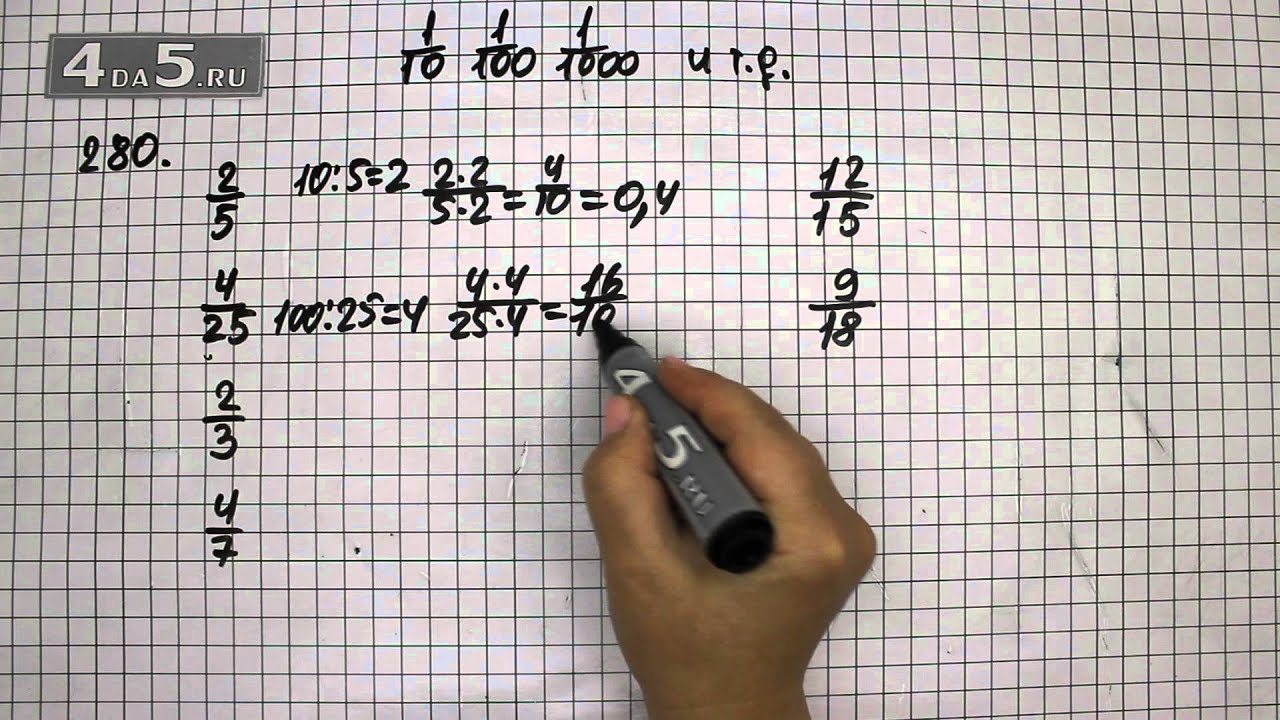 4DA5.RU
1/10 1/100 1/1000 и т.д.
280.
2/5 10:5=2 2·2/5·2=4/10=0,4 12/15
4/25 100:25=4 4·4/25·4=16/10 9/18
2/3
4/7
4 5.RU